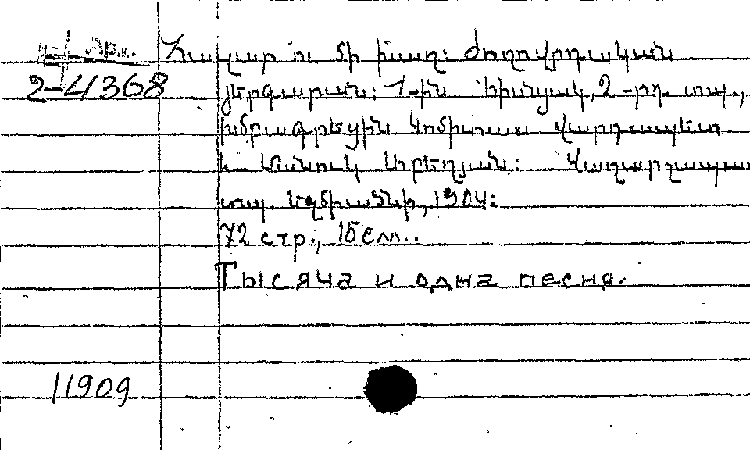 Հազար ու մի խաղ: Ժողովրդական
2-4368
յերգարան: 1-ին հիսնյակ, 2-րդ. տպ.,
խմբագրեցին Կոմիտաս վարդապետ
և Մանուկ Աբեղյան: Վաղարշապատ
տպ. Էջմիածնի, 1904:
72 стр., 15 см..
Тысяча и одна песня.
11909